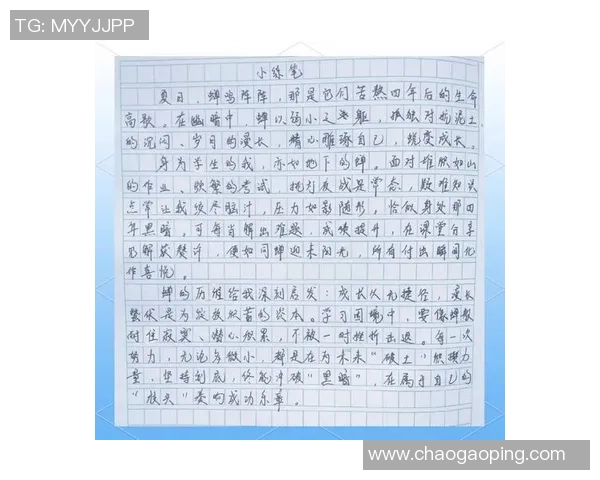 TG: MYYJJPP
小练笔
夏日，蝉鸣阵阵，那是它们苦熬四年后的生命
高歌。在幽暗中，蝉以弱小之躯，孤独对抗泥土
的沉闷、岁月的漫长，精心雕琢自己，蜕变成长。
身为学生的我，亦如地下的蝉。面对堆积如山
的作业、频繁的考试，挑灯夜战是常态，疑难知识
点常让我绞尽脑汁，压力如影随形，恰似身处那四
年黑暗。可每当解出难题，成绩提升，在课堂分享
见解获赞许，便如同蝉迎来阳光，所有付出瞬间化
作喜悦。
蝉的历程给我深刻启发：成长从无捷径，漫长
蛰伏是为发积蓄的资本。学习困境中，要像蝉般
耐住寂寞、潜心积累，不被一时挫折击退。每一次
努力，无论多微小，都是在为未来“破土”积攒力
量，坚持到底，终能冲破“黑暗”，在属于自己的
“枝头”奏响成功乐章。
www.chaogaoping.com